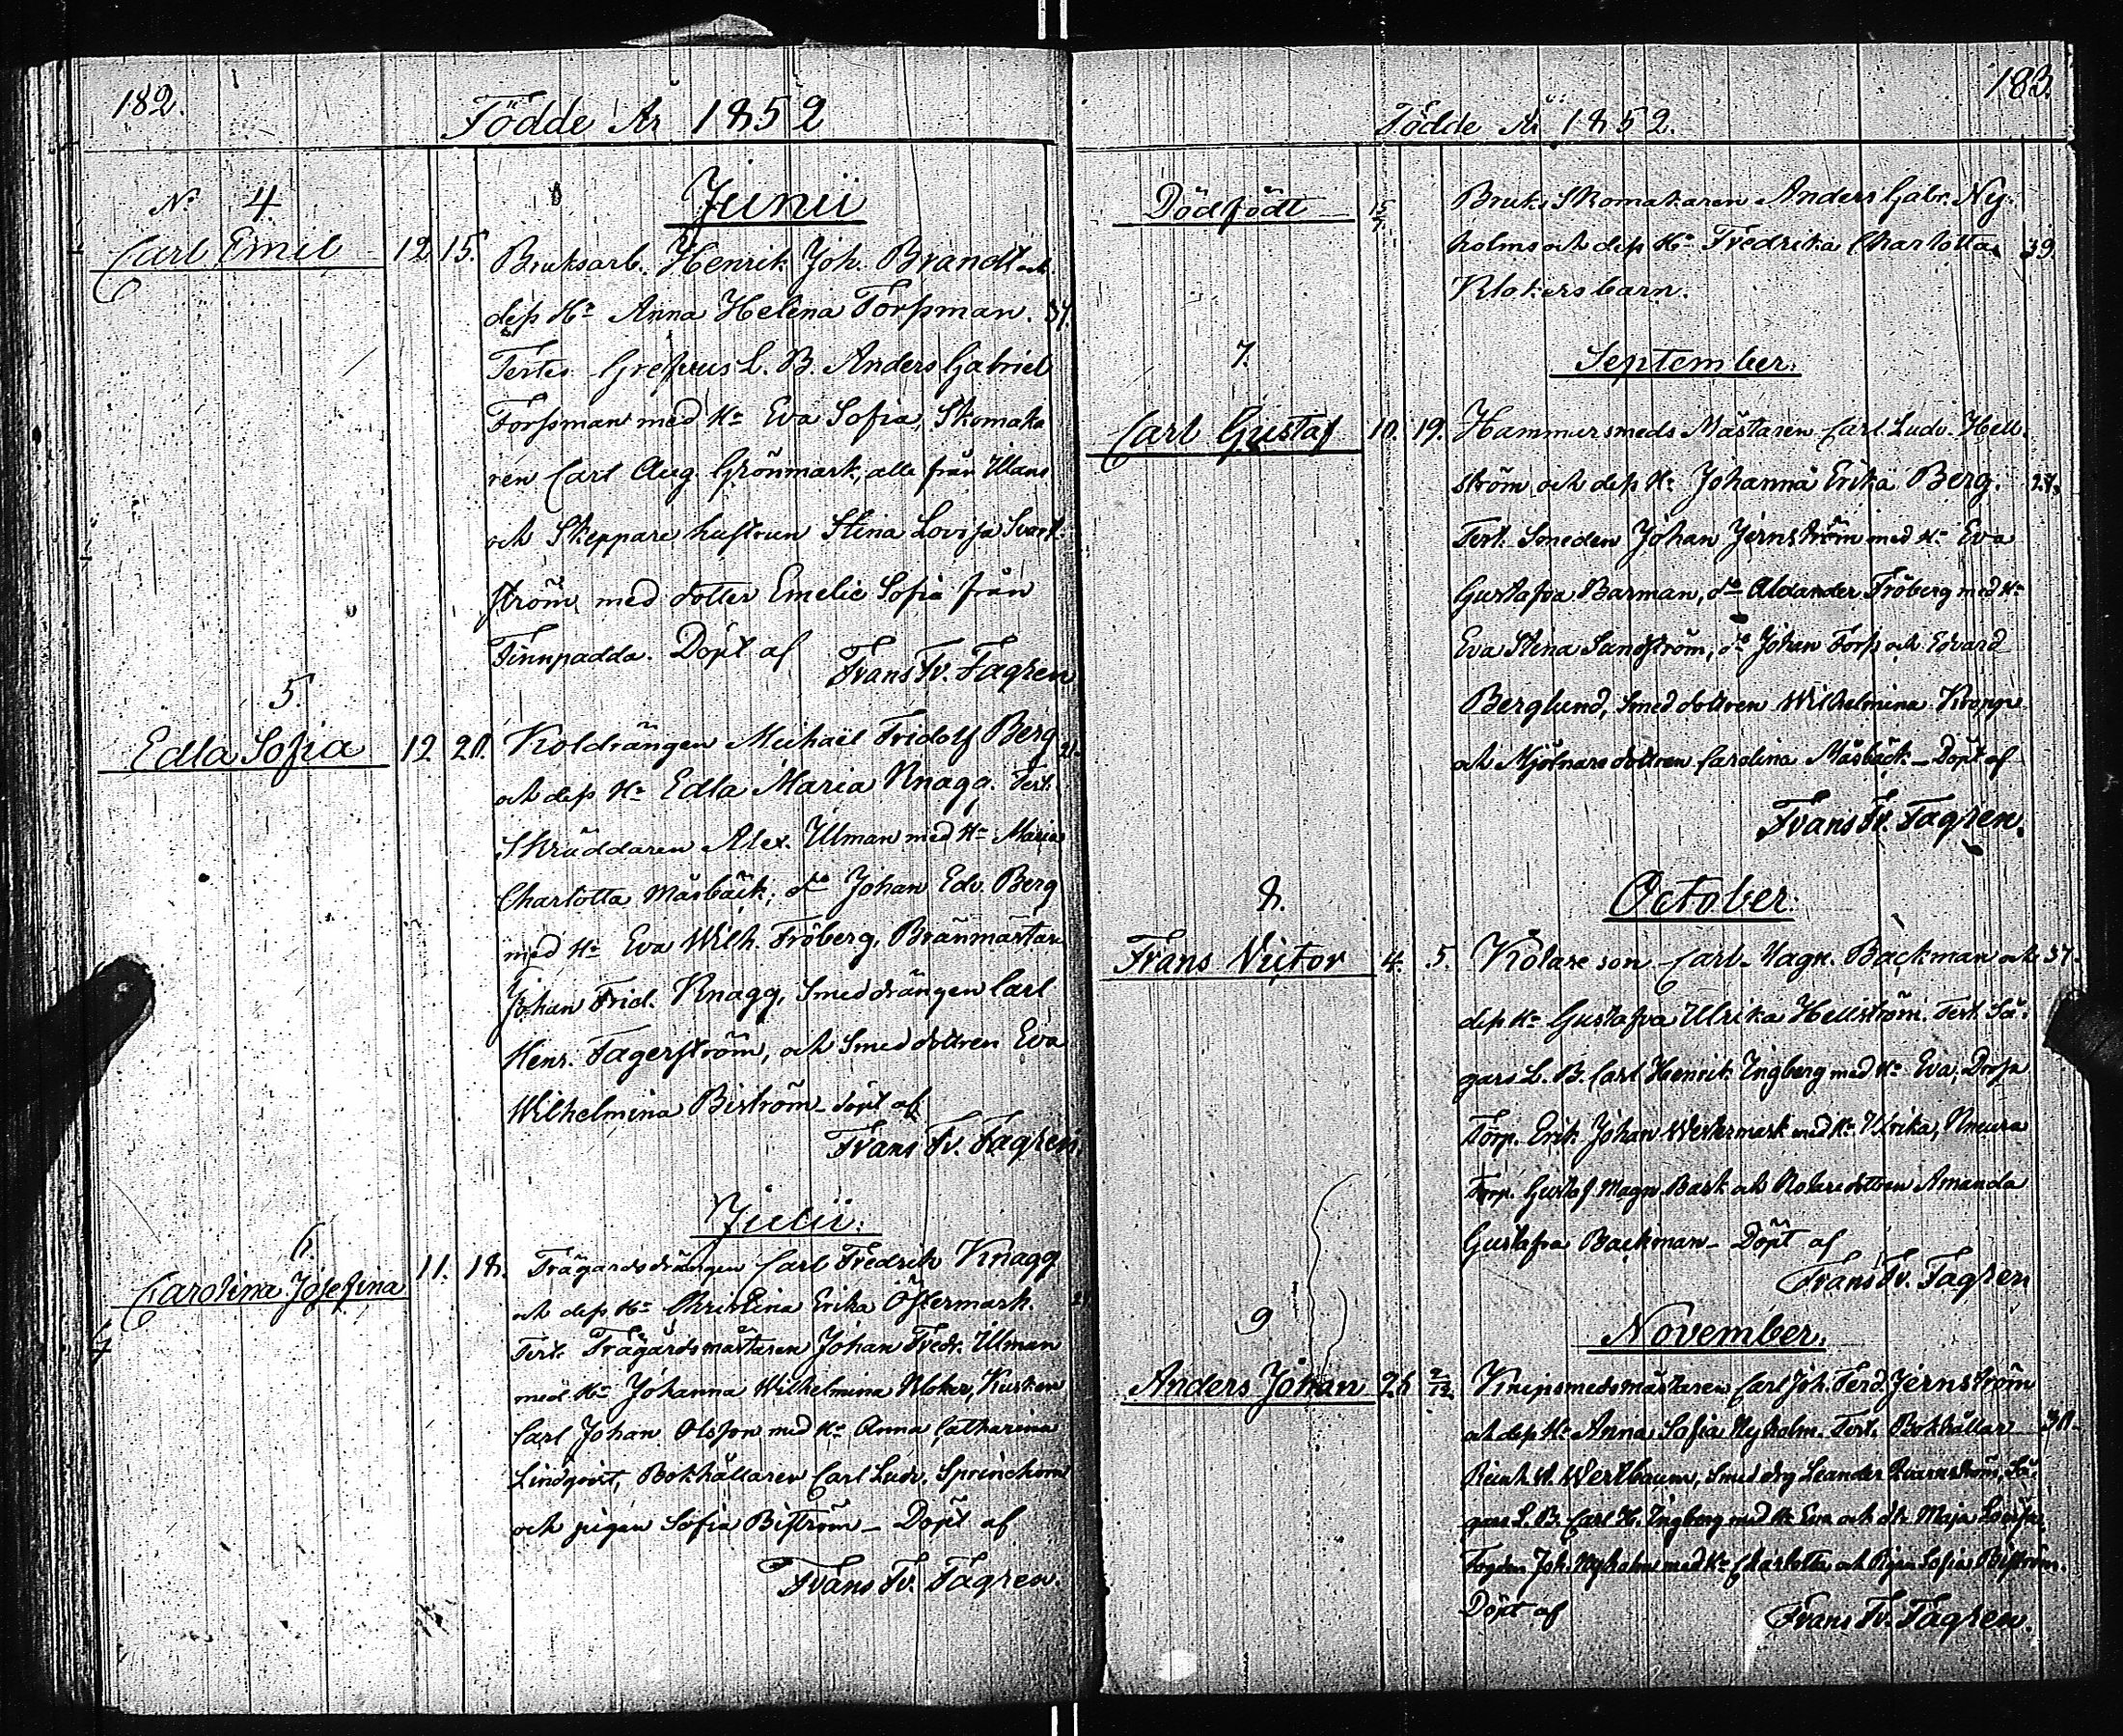 182.
Födde År 1852
No 4.
Junii
Carl Emil 12 15. Bruksarb. Henrik Joh. Brandt och
dess Ha Anna Helena Forssman. 37.
Testes L. B. Anders Gabriel
Forssman med Ha Eva Sofia, Skomaka
ren Carl Aug. Grönmark, alla från
och Skeppare hustrun Stina Lovisa Svart-
ström med dotter Emelie Sofia från
Finnpadda. Döpt af Frans Fr. Fagren
5.
Edla Sofia 12 20. Koldrängen Michaël Fridolf Berg
och dess Ha Edla Maria Knagg. Test.
Skräddaren Alex. Ulman med Ha Maria
Charlotta Måsbäck; do Johan Edv. Berg
med Ha Eva Wilh. Fröberg, Bränmästare
Johan Frid. Knagg, Smeddrängen Carl
Henr. Fagerström, och Smeddottren Eva
Wilhelmina Biström – döpt af
Frans Fr. Fagren.
Julii.
6.
Carolina Josefina 11. 18. Trägårdsdrängen Carl Fredrik Knagg
och dess Ha Christina Erika Östermark.
Test. Trägårdsmästaren Johan Fredr. Ulman
med Ha Johanna Wilhelmina Kloker, Kusken
Carl Johan Olsson med Ha Anna Catharina
Lindqvist, Bokhållaren Carl Ludv.
och pigan Sofia Biström – Döpt af
Frans Fr. Fagren.
183.
Födde År 1852.
Dödfödt 15/7 Bruks Skomakaren Anders Gabr. Ny-
holms och dess Ha Fredrika Charlotta 39.
Klokers barn.
7.
September.
Carl Gustaf 10. 19. Hammarsmeds Mästaren Carl Ludv. Hell-
ström och dess Ha Johanna Erika Berg.
Test. Smeden Johan Jernström med Ha Eva
Gustafva Barman, do Alexander Fröberg med Ha
Eva Stina Sandström, do Johan Forss och Edvard
Berglund, Smeddottren Wilhelmina Kropp
och Mjölnaredottren Carolina Måsbäck – Döpt af
Frans Fr. Fagren.
8.
October.
Frans Victor 4. 5. Kolare son Carl Magn. Backman och 37.
dess Ha Gustafva Ulrika Hellström. Test. Så-
gars L. B. Carl Henrik Engberg med Ha Eva,
Torp. Erik Johan Westermark med Ha Ulrika,
Torp. Gustaf Magn. Bark och Kolaredottren Amanda
Gustafva Backman – Döpt af
Frans Fr. Fagren
9
November.
Anders Johan 26 2/12 Knipsmedsmästaren Carl Joh. Ferd. Jernström
och dess Ha Anna Sofia Nyholm. Test. Bokhållar 30.
Reinh. W. Smeddrg Leander Så-
gars L. B. Carl H. Engberg med Ha Eva och dr Maja Lovisa,
Joh. Nyholm med Ha Charlotta och Pigan Sofia Biström.
Döpt af Frans Fr. Fagren.